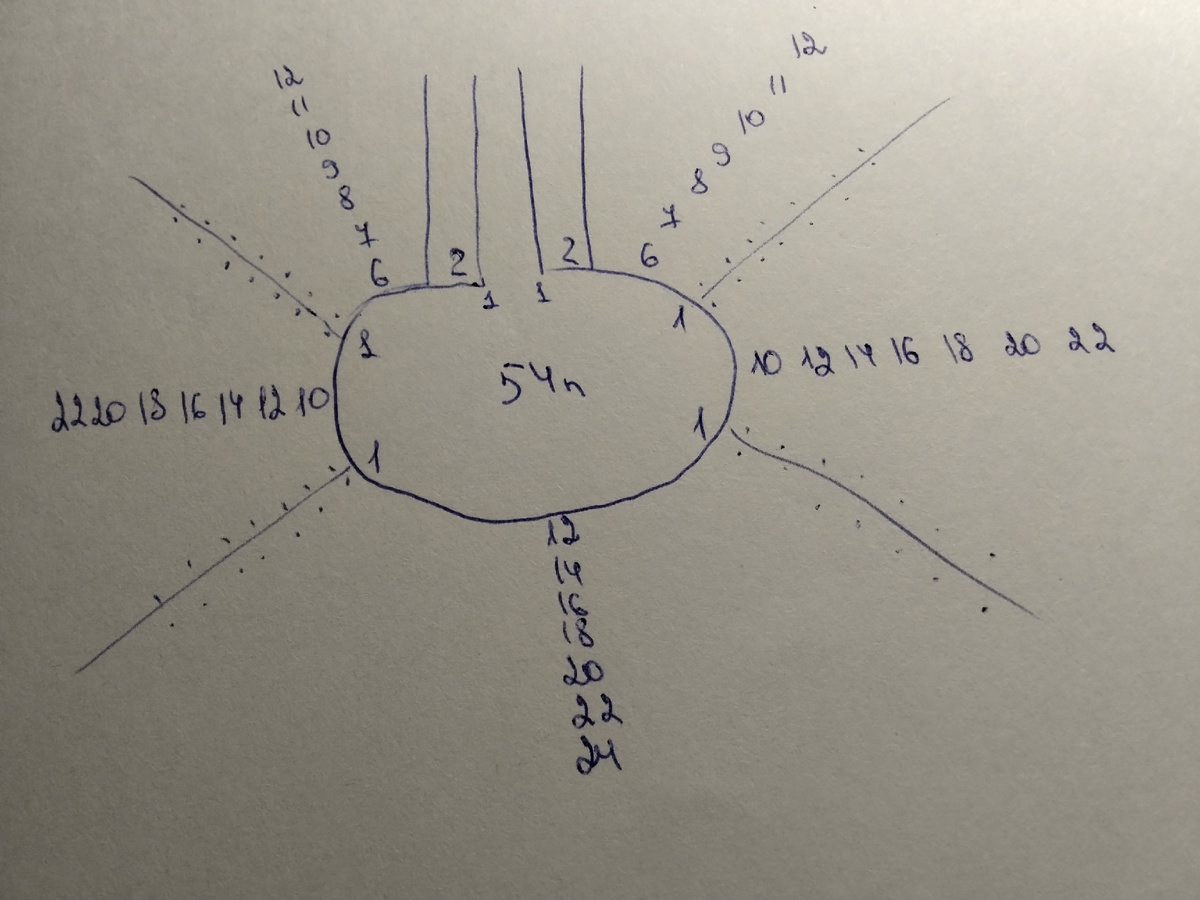 12
11
10
9
8
7
6
2
1
1
2
6
7
8
9
10
11
12
1
1
54п
10 12 14 16 18 20 22
22 20 18 16 14 12 10
1
1
12
14
16
18
20
22
24